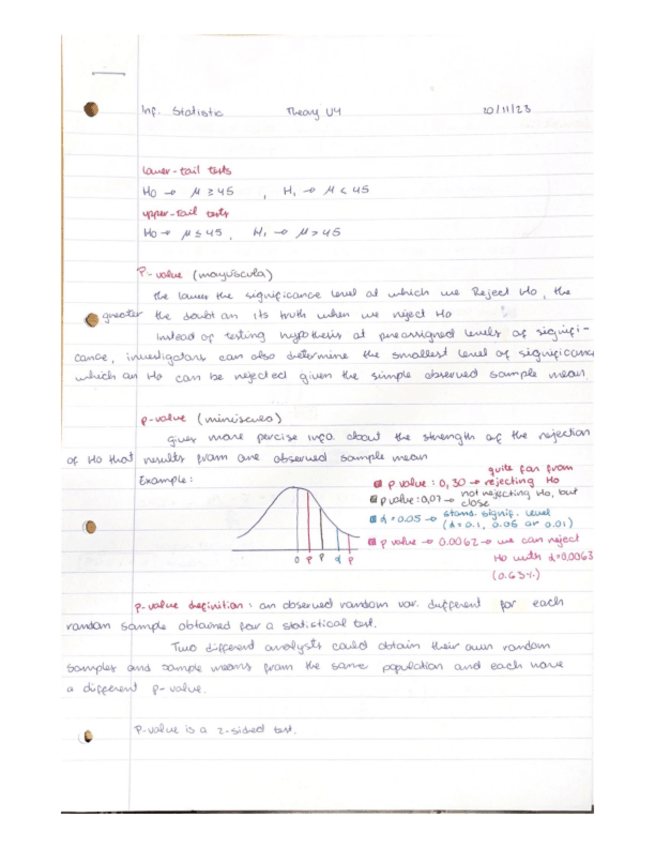 Inf. Statistic Theory U4 20/11/23
lower-tail tests
Ho → μ ≥ 45 , H₁ → μ < 45
upper-tail tests
Ho → μ ≤ 45 , H₁ → μ > 45
P-value (mayúscula)
the lower the significance level at which we Reject Ho, the
greater the doubt an its truth when we reject Ho
Instead of testing hypothesis at preassigned levels of signifi-
cance, investigators can also determine the smallest level of significance
which an Ho can be rejected given the simple observed sample mean.
p-value (minúsculo)
gives more percise info. about the strength of the rejection
of Ho that results from one observed sample mean
Example:
p value: 0,30 → quite far from rejecting Ho
p value: 0,07 → not rejecting Ho, but close
α = 0.05 → stand. signif. level
(α = 0.1, 0.05 or 0.01)
p value → 0.0062 → we can reject
Ho with α = 0,0063
(0.63%)
0 P P α P
p-value definition: an observed random var. different for each
random sample obtained for a statistical test.
Two different analysts could obtain their own random
samples and sample means from the same population and each have
a different p-value.
P-value is a 2-sided test.